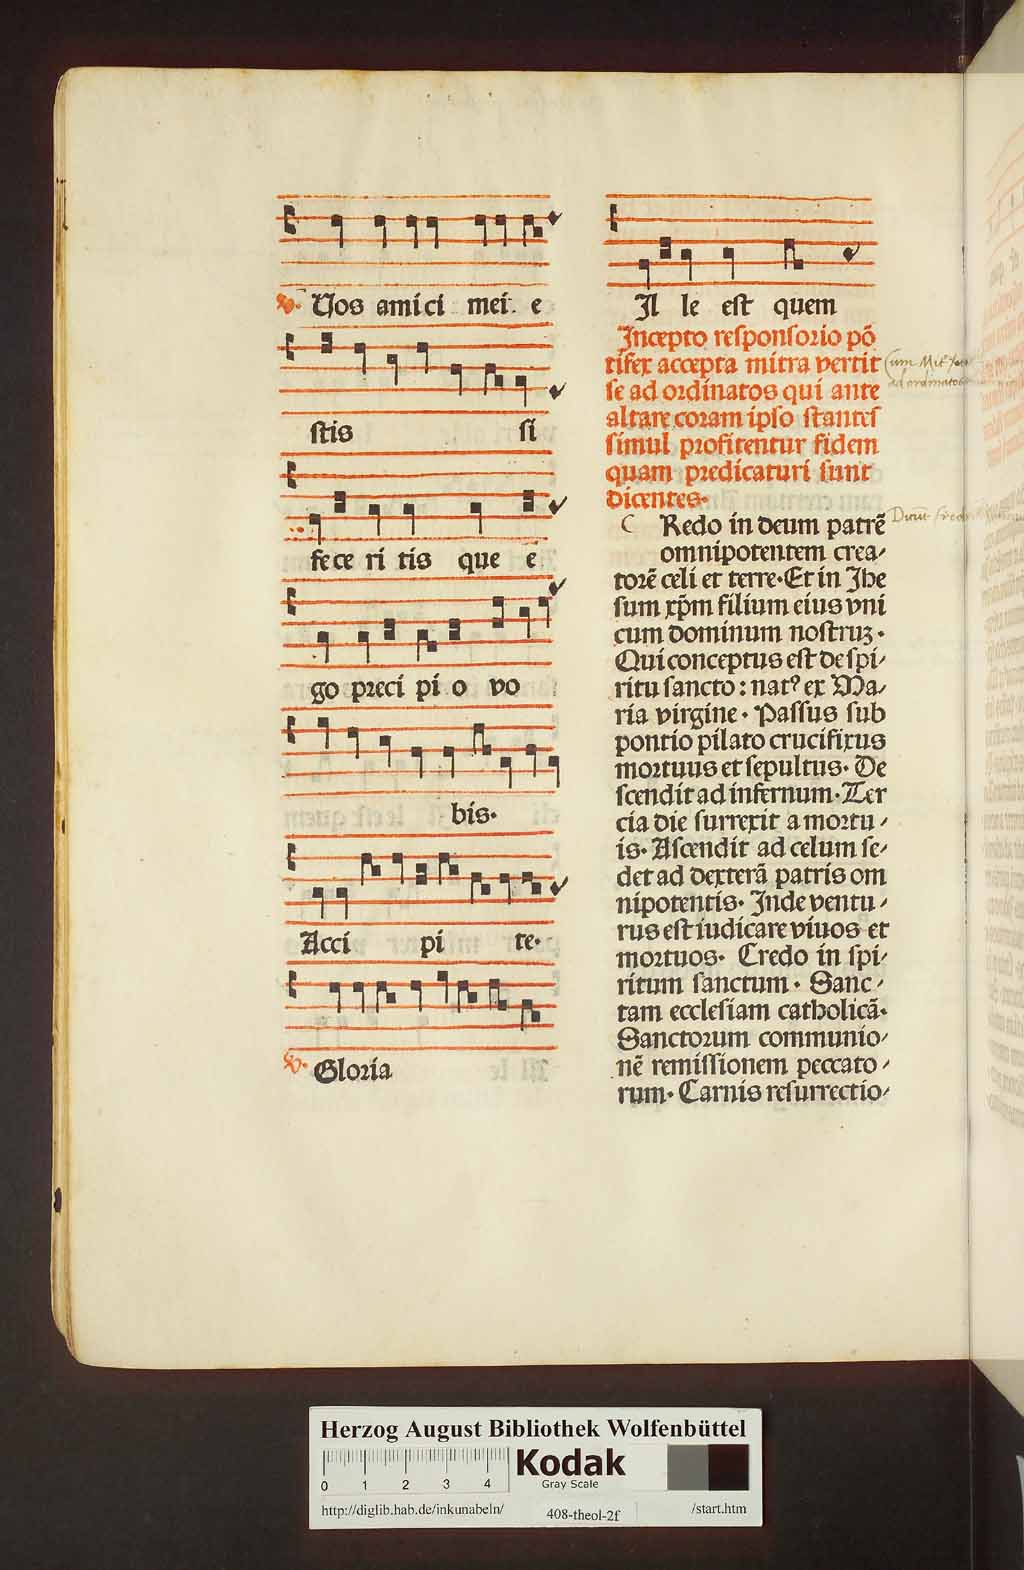 ℣. Uos amici mei. e
stis si
fece ri tis que e
go preci pi o vo
bis.
Acci pi te.
℣. Gloria
Il le est quem
Incepto responsorio põ
tifex accepta mitra vertit
se ad ordinatos qui ante
altare coram ipso stantes
simul profitentur fidem
quam predicaturi sunt
dicentes.
C Redo in deum patrẽ
omnipotentem crea⸗
torẽ celi et terre. Et in Jhe
sum xp̃m filium eius vni
cum dominum nostruꝫ.
Qui conceptus est de spi⸗
ritu sancto: natꝰ ex Ma⸗
ria virgine. Passus sub
pontio pilato crucifixus
mortuus et sepultus. De
scendit ad infernum. Ter
cia die surrexit a mortu⸗
is. Ascendit ad celum se⸗
det ad dexterã patris om
nipotentis. Inde ventu⸗
rus est iudicare viuos et
mortuos. Credo in spi⸗
ritum sanctum. Sanc⸗
tam ecclesiam catholicã.
Sanctorum communio⸗
nẽ remissionem peccato⸗
rum. Carnis resurrectio⸗
ad ordinatos
Herzog August Bibliothek Wolfenbüttel
0 1 2 3 4
Kodak
Gray Scale
http://diglib.hab.de/inkunabeln/ 408-theol-2f /start.htm